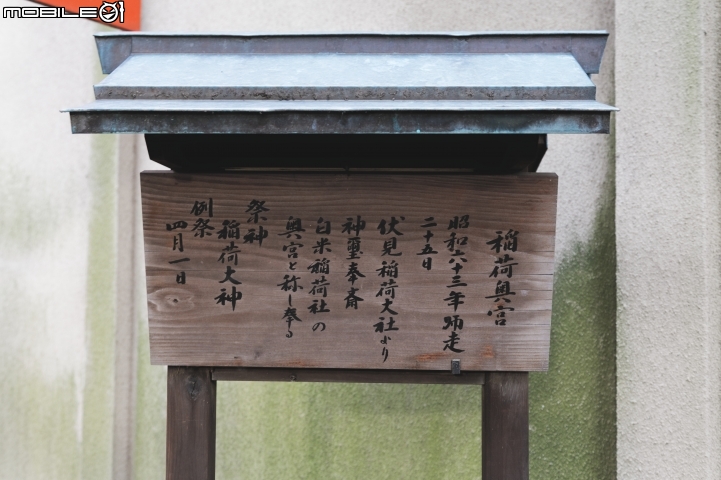 MOBILE01
稲荷奥宮
昭和六十三年師走
二十五日
伏見稲荷大社より
神璽奉斎
白米稲荷社の
奥宮と称し奉る
祭神
稲荷大神
例祭
四月一日